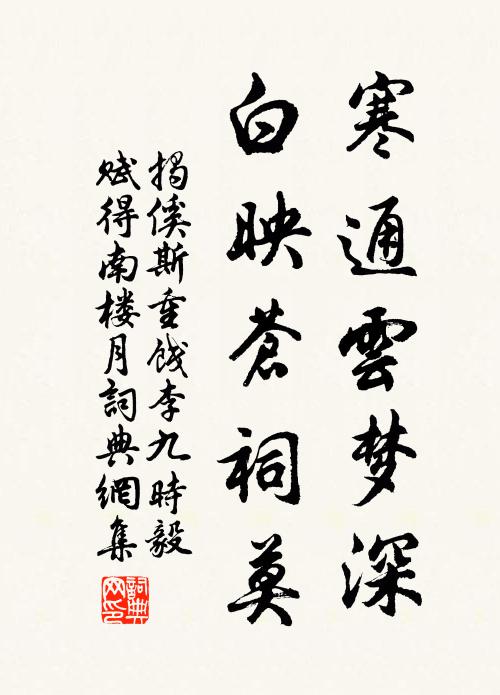 寒通雲梦深
白映蒼祠莫
揭傒斯重餞李九時毅
赋得南楼月詞典網集
詞典
网印